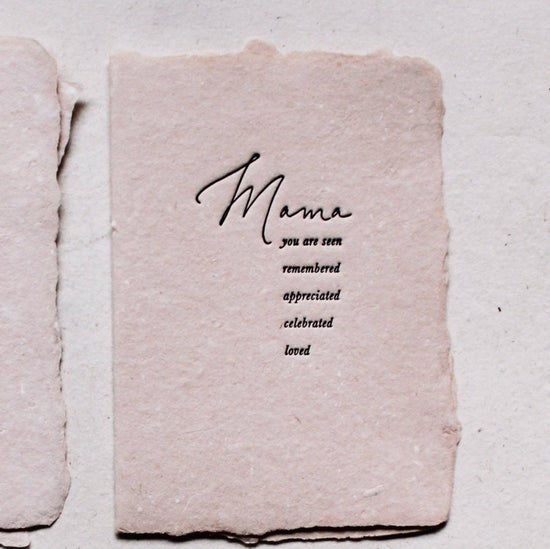 Mama
you are seen
remembered
appreciated
celebrated
loved